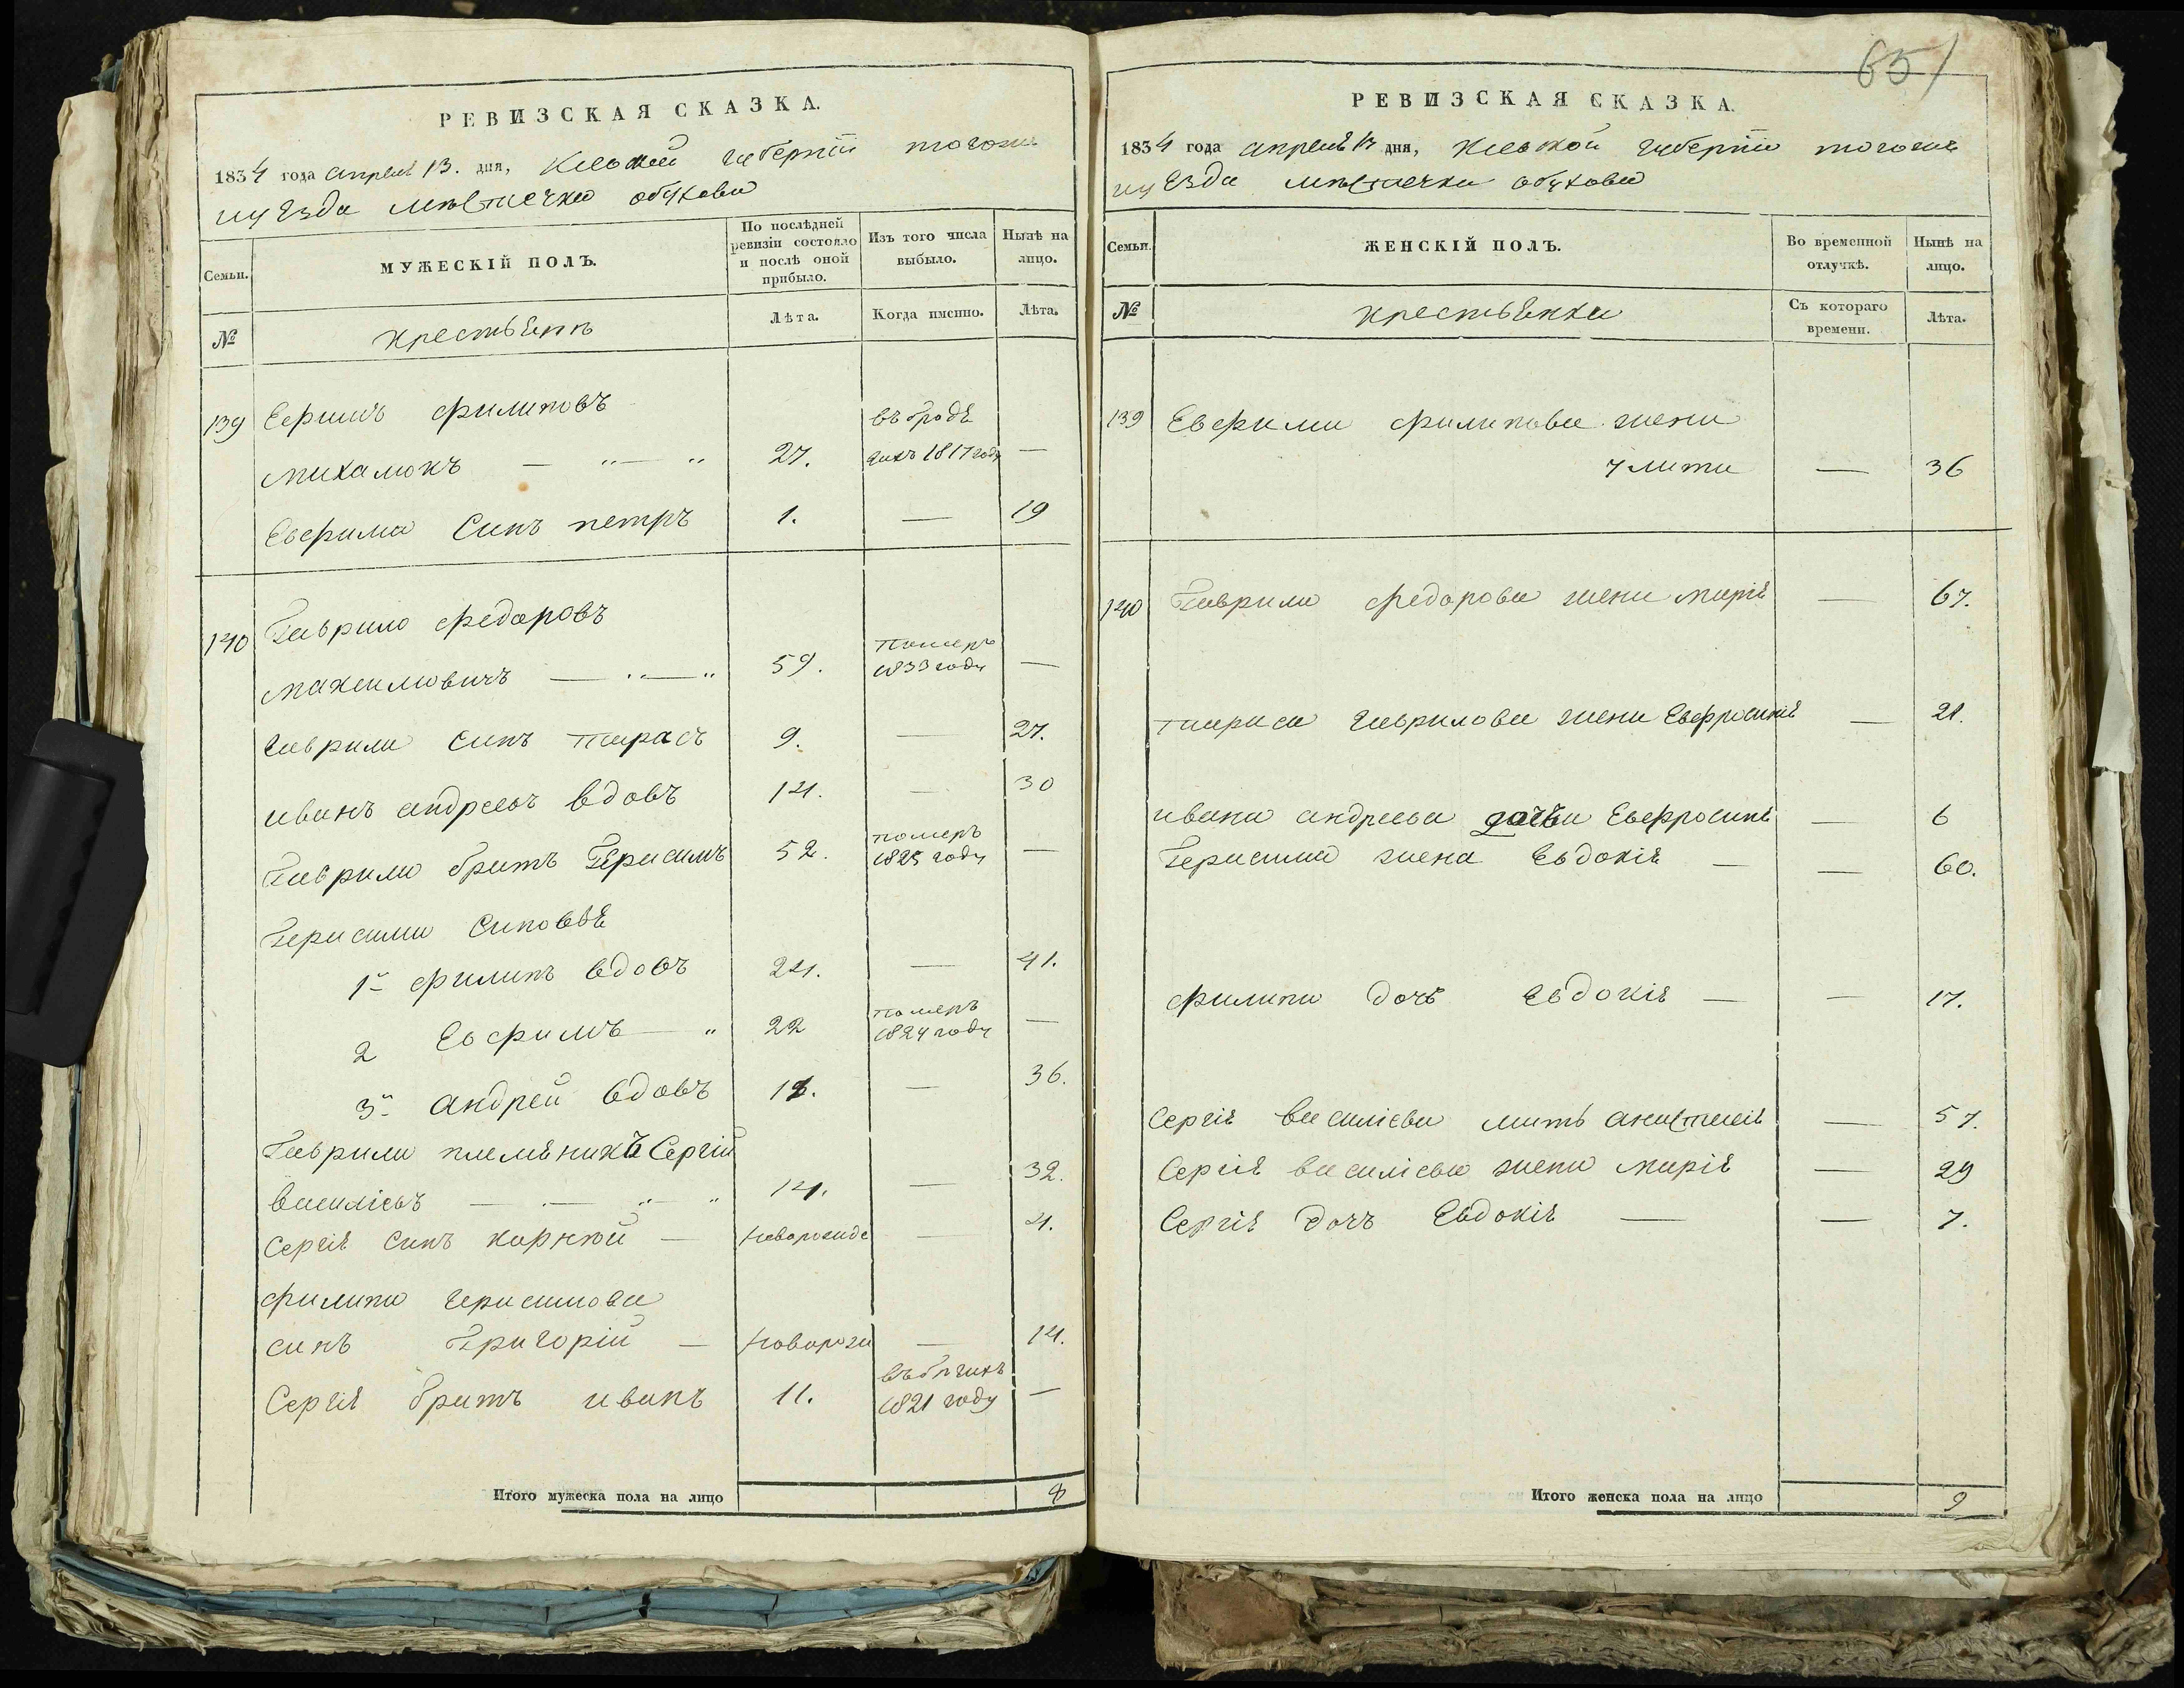 РЕВИЗСКАЯ СКАЗКА.
1834 года апреля 13. дня, Киевской губернiи тогоже
уезда местечка обухова
Семьи.
МУЖЕСКІЙ ПОЛЪ.
По послѣдней ревизіи состояло и послѣ оной прибыло.
Изъ того числа выбыло.
Нынѣ на лицо.
№
крестьянъ
Лѣта.
Когда именно.
Лѣта.
139 Ефимъ филиповъ
въ бродя
михалюкъ — „ — „ 27. гахъ 1817 году —
Евфима Синъ петръ 1. — 19
140 Гаврило федоровъ
михаиловичъ — „ — „ 59. померъ 1833 году —
гаврили синъ тарасъ 9. — 27.
иванъ андреевъ вдовъ 14. — 30
Гаврили братъ Герисимъ 52. померъ 1825 году —
Герисима Синовѣя
1й филипъ вдовъ 24. — 41.
2 Евфимъ — „ 22 померъ 1824 году —
3й андрей вдовъ 18. — 36.
Гаврила племяникъ Сергій
василіевъ — „ — „ 14. — 32.
Сергія Синъ корней — новорожде — 4.
филипа герисимова
синъ Григорій — Новорож — 14.
Сергія братъ иванъ 11. въ бѣгахъ 1821 году —
Итого мужеска пола на лицо 8
651
РЕВИЗСКАЯ СКАЗКА.
1834 года апреля 13 дня, Киевской губерніи тогоже
уезда местечка обухова
Семьи.
ЖЕНСКІЙ ПОЛЪ.
Во временной отлучкѣ.
Нынѣ на лицо.
№
крестьянка
Съ котораго времени.
Лѣта.
139 Евфима филипова жена
улита — 36
140 Гаврила федорова жена марія — 67.
тараса гаврилова жена Евфросинія — 21.
ивана андреева дочъ Евфросиня — 6
Герисима жена Евдокія — — 60.
филипа дочъ Евдокія — — 17.
Сергія василіева мать анастасія — 57.
Сергія василіева жена марія — 29
Сергія дочъ Евдокія — — 7.
Итого женска пола на лицо 9